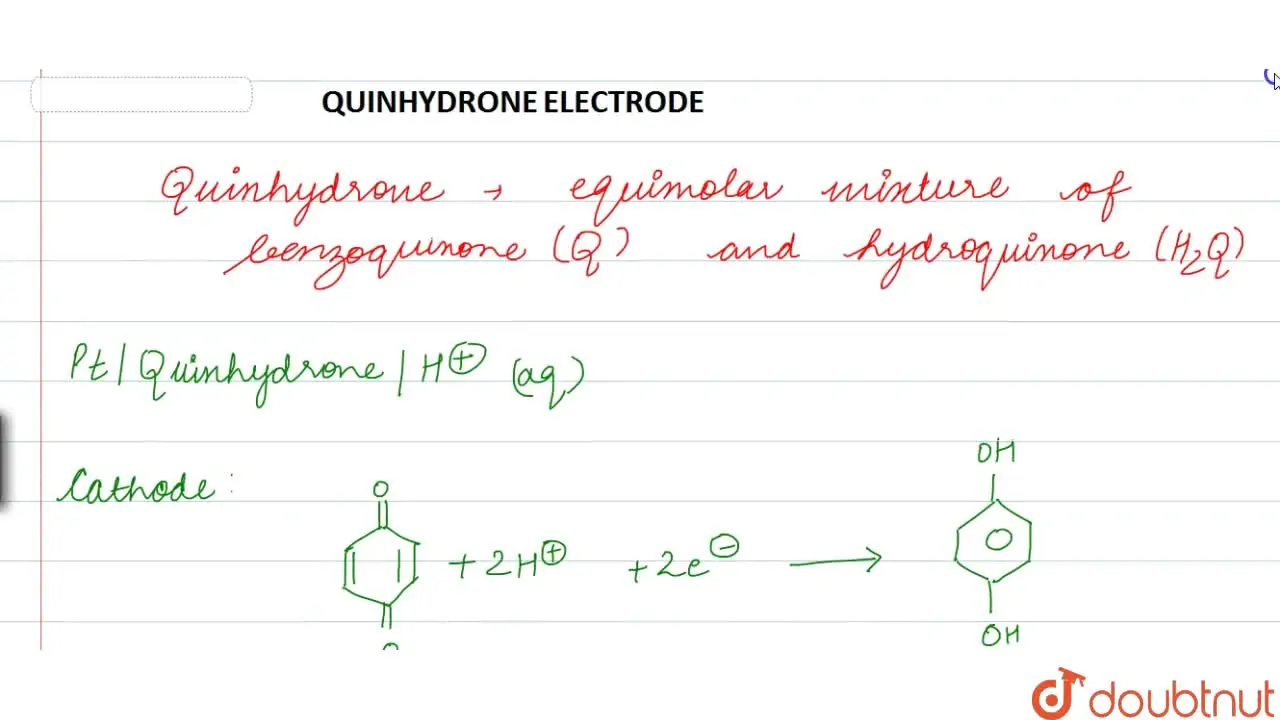 QUINHYDRONE ELECTRODE
Quinhydrone → equimolar mixture of
benzoquinone (Q) and hydroquinone (H₂Q)
Pt / Quinhydrone / H⊕ (aq)
Cathode :
OH
O
+ 2H⊕ + 2e⊖ →
O
OH
doubtnut